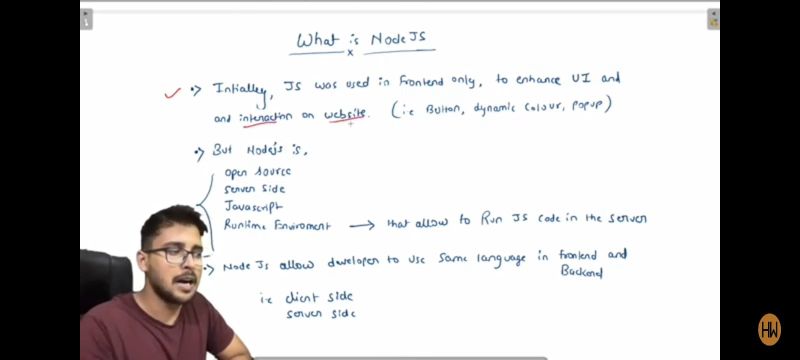 What is NodeJS
x
•> Intialley, JS was used in Frontend only, to enhance UI and
and interaction on website. (i.e Button, dynamic colour, popup)
•> But Nodejs is,
open source
server side
Javascript
Runtime Enviroment → that allow to Run JS code in the server
•> Node Js allow developer to use same language in frontend and
Backend
i.e client side
server side
HW